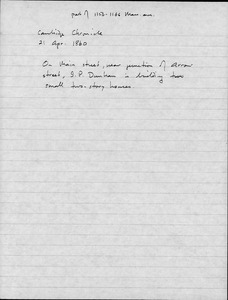 part of 1153-1166 Mass. ave.
Cambridge Chronicle
21 Apr. 1860
On Main street, near junction of Arrow
street, I.P. Dunham is building two
small two-story houses